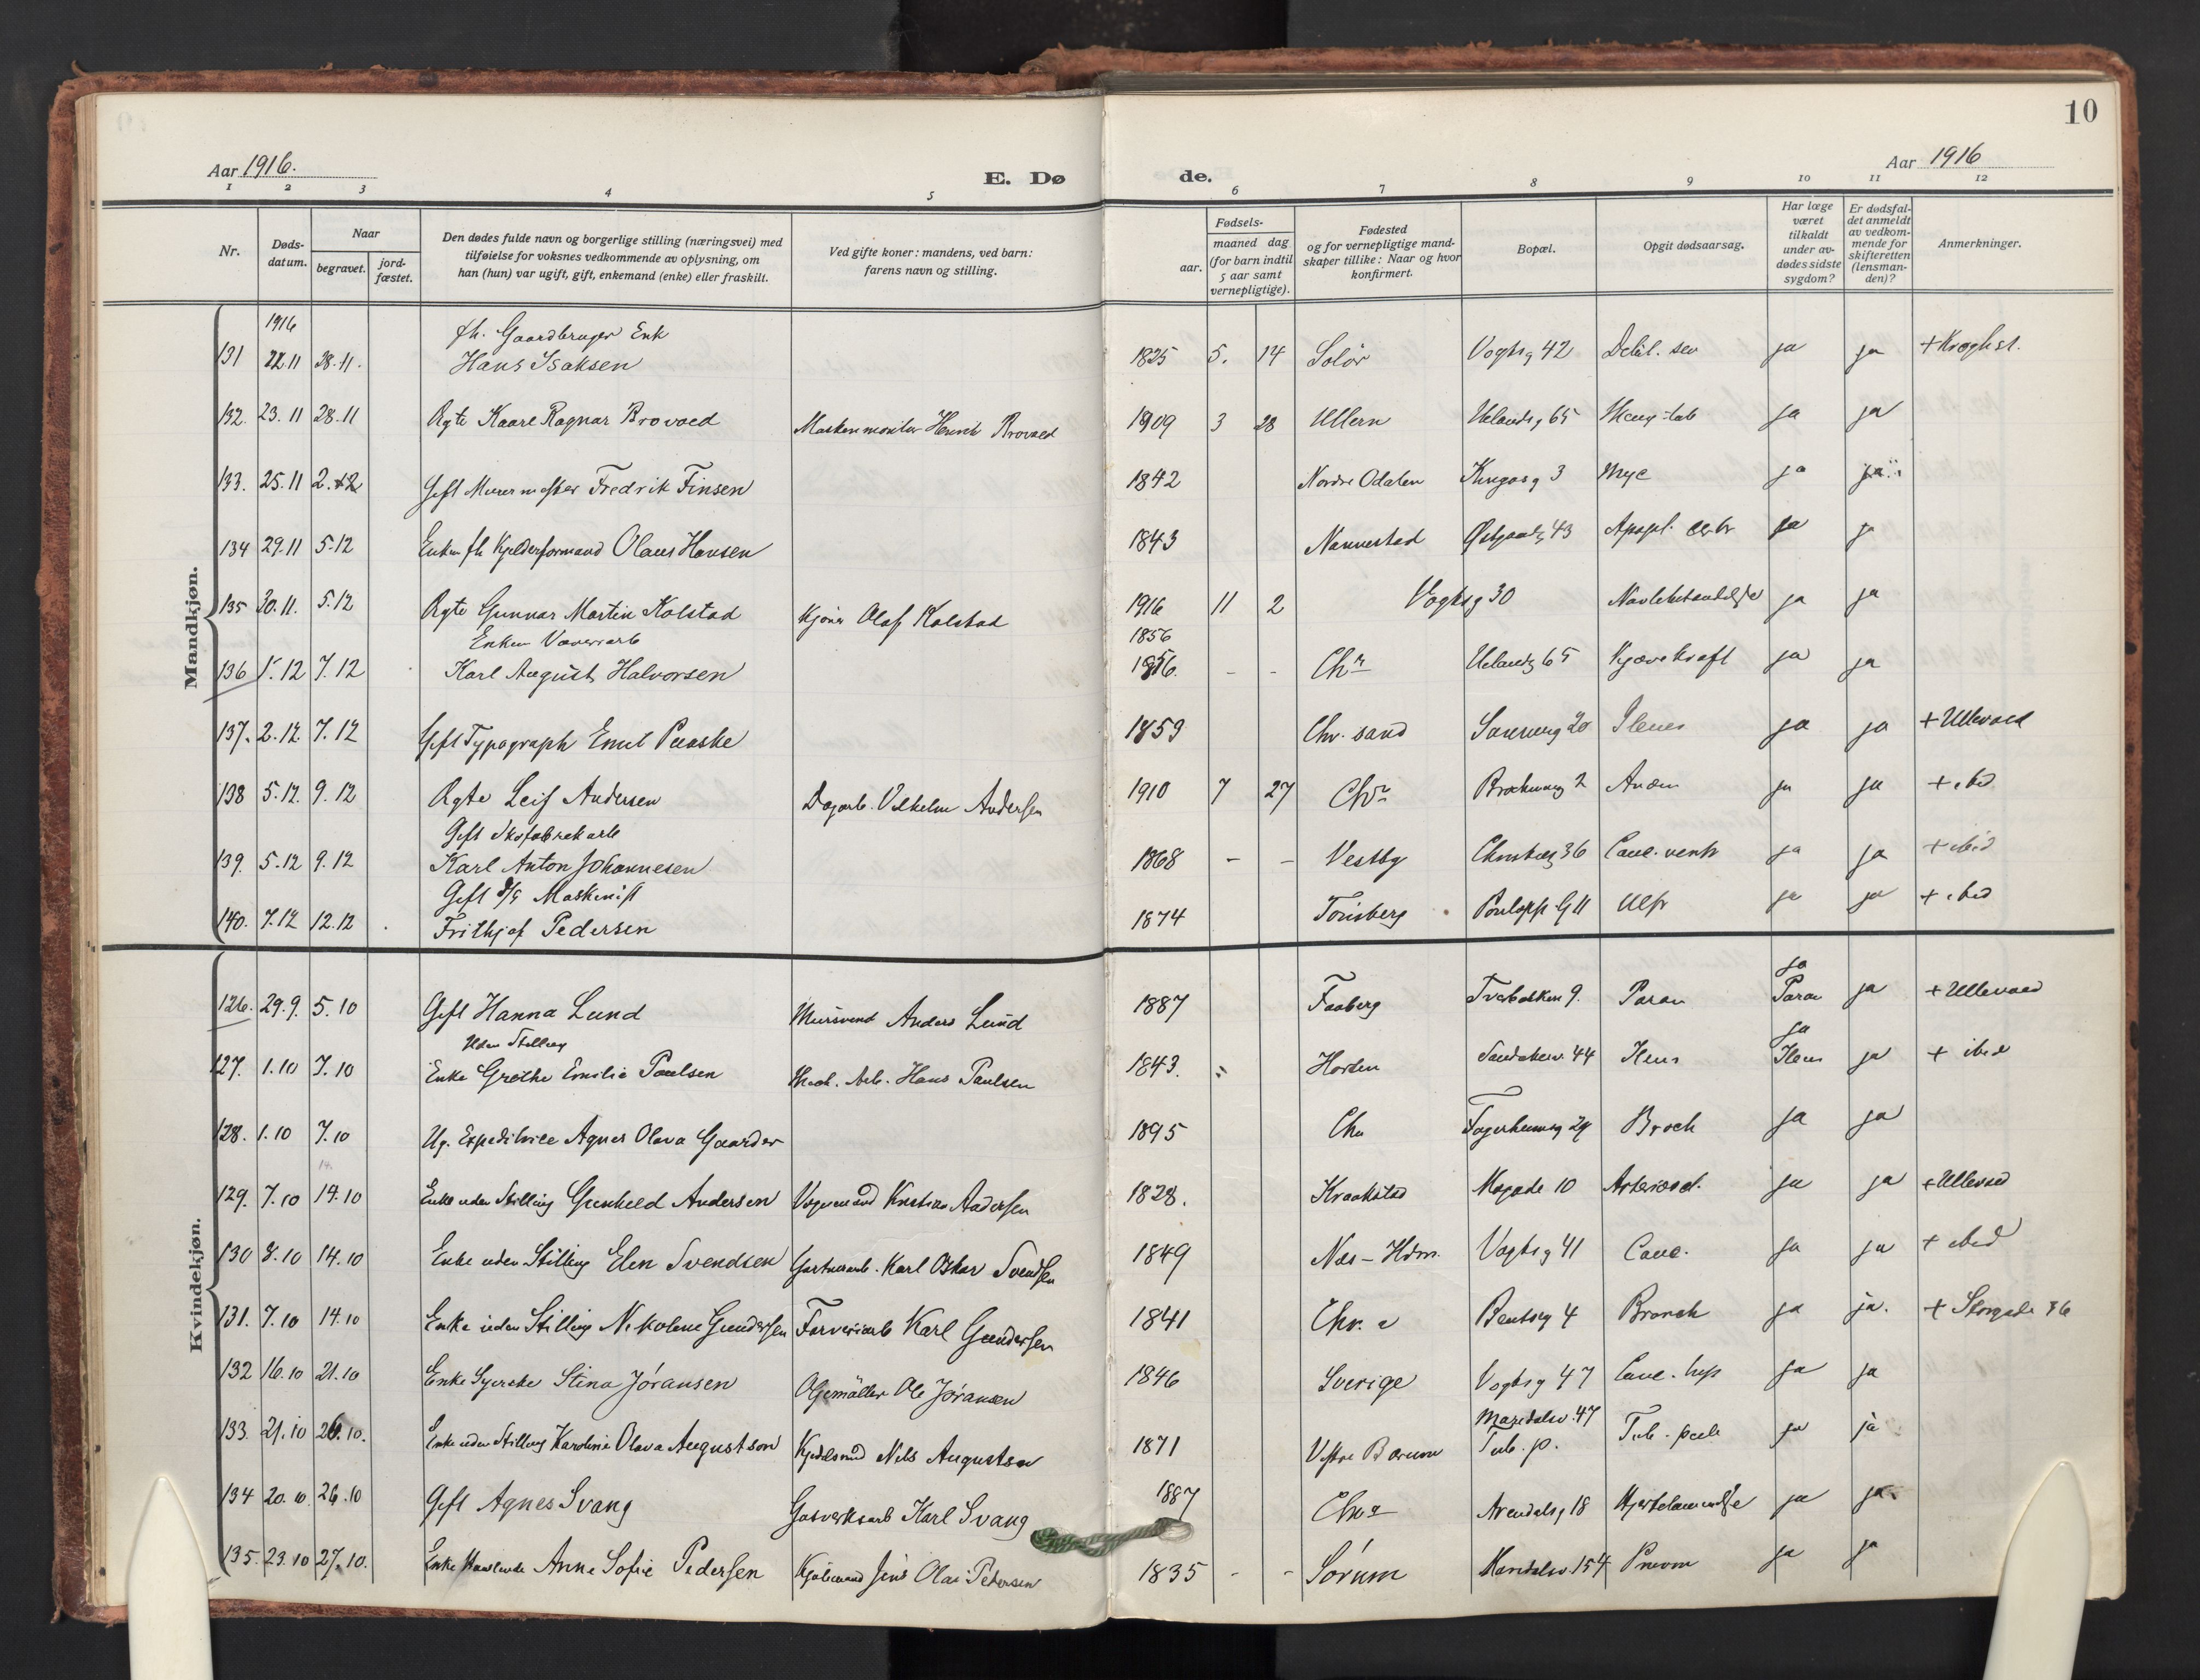 10
Aar 1916.
E. Dø
de.
Aar 1916
1 2 3 4 5 6 7 8 9 10 11 12
Nr.
Døds-
datum.
Naar
begravet.
jord-
fæstet.
Den dødes fulde navn og borgerlige stilling (næringsvei) med
tilføielse for voksnes vedkommende av oplysning, om
han (hun) var ugift, gift, enkemand (enke) eller fraskilt.
Ved gifte koner: mandens, ved barn:
farens navn og stilling.
Fødsels-
aar.
maaned dag
(for barn indtil
5 aar samt
vernepligtige).
Fødested
og for vernepligtige mand-
skaper tillike: Naar og hvor
konfirmert.
Bopæl.
Opgit dødsaarsag.
Har læge
været
tilkaldt
under av-
dødes sidste
sygdom?
Er dødsfal-
det anmeldt
av vedkom-
mende for
skifteretten
(lensman-
den)?
Anmerkninger.
Mandkjøn.
1916
fh. Gaardbruger Enk
131 22.11 28.11. Hans Isaksen 1825 5. 14 Solør Vogtsg 42 Debil. sen ja ja
132. 23.11 28.11 Ægte Kaare Ragnar Brovold Henrik Brovold 1909 3 28 Ullern Uelandsg 65 ja ja
133. 25.11 2.12 Gift Murermester Fredrik Finsen 1842 Nordre Odalen Kingosg 3 Myc ja ja
134 29.11 5.12 Enkem fh Kjelderformand Olaus Hansen 1843 Nannestad Apopl. ja ja
135 30.11. 5.12 Ægte Gunnar Martin Kolstad Kjører Olaf Kolstad 1916 11 2 Vogtsg 30 ja ja
Enkem Væveriarb 1856
136 1.12 7.12 Karl August Halvorsen 1856. - - Chr Uelandsg 65 ja ja
137. 2.12. 7.12 Gift Typograph Emil 1859 Chr. sand Ileus ja ja + Ullevold
138 5.12. 9.12 Ægte Leif Andersen Dagarb. Vilhelm Andersen 1910 7 27 Chr ja ja + ibid
Gift Skofabrikarb
139. 5.12 9.12 Karl Anton Johannesen 1868 - - Vestby Canc. ventr ja ja + ibid
Gift Maskinist
140. 7.12 12.12 Frithjof Pedersen 1874 Tønsberg ja ja + ibid
Kvindekjøn.
ja
126. 29.9. 5.10 Gift Hanna Lund Mursvend Anders Lund 1887 Faaberg ja + Ullevold
Uden Stilling ja
127. 1.10 7.10 Enke Grethe Emilie Paulsen Hans Paulsen 1843. Horten Ileus Ileus ja + ibid
128. 1.10 7.10 Ug. Expeditrice Agnes Olava Gaarder 1895 Chr ja ja
129. 7.10 14.10 Enke uden Stilling Gunhild Andersen Vognmand Kristian Andersen 1828. Kraakstad Mogade 10 ja ja + Ullevold
130 8.10 14.10 Enke uden Stilling Elen Svendsen Karl Oskar Svendsen 1849 Nes - Hdm. Vogtsg 41 Canc. ja ja + ibid
131. 7.10 14.10 Enke uden Stilling Nikoline Gundersen Farveriarb Karl Gundersen 1841 Chr. a Bentseg 4 Bronch ja ja. + Storgade 36
132 16.10 21.10 Enke Syerske Stina Jóransen Oljemøller Ole Jóransen 1846 Sverige Vogtsg 47 Canc. hep ja ja
Maridalsv. 47
133. 21.10 26.10. Enke uden Stilling Karoline Olava Augustson Nils Augustson 1871 Vestre Bærum Tub. p. Tub. pulm ja ja
134 20.10 26.10 Gift Agnes Svang Gasverksarb Karl Svang 1887 Chra Arendalsg 18 Hjertelammelse ja ja
135. 23.10 27.10. Enke Anne Sofie Pedersen Jens Olai Pedersen 1835 - - Sørum Maridalsv. 154 Pneum ja ja